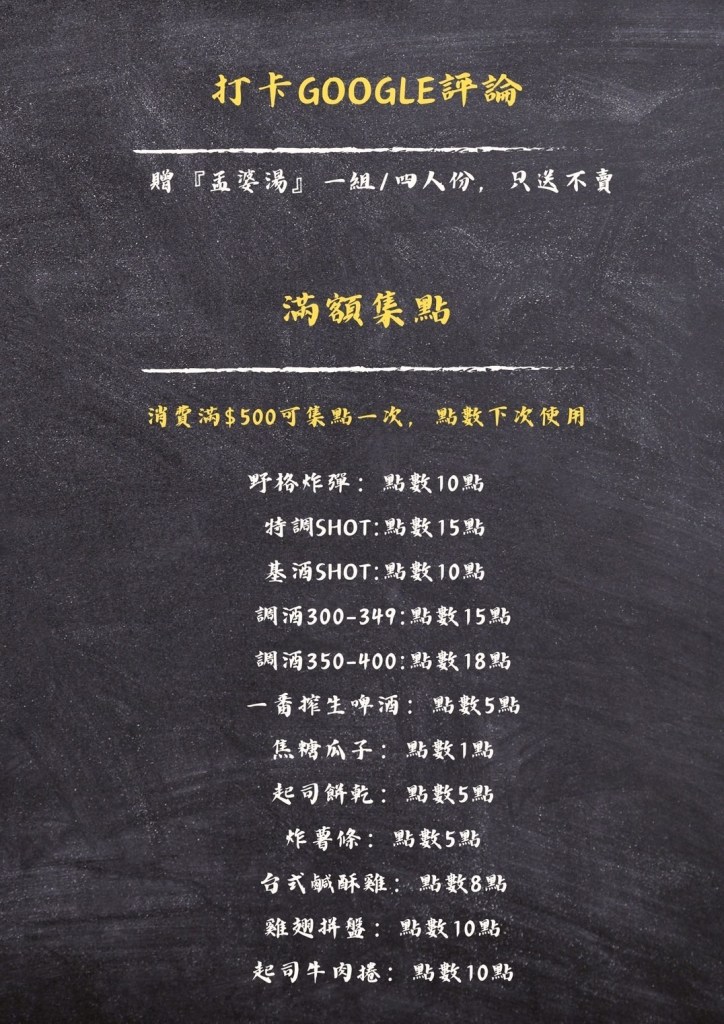 打卡GOOGLE評論
贈『孟婆湯』一組/四人份，只送不賣
滿額集點
消費滿$500可集點一次，點數下次使用
野格炸彈：點數10點
特調SHOT:點數15點
基酒SHOT:點數10點
調酒300-349:點數15點
調酒350-400:點數18點
一番搾生啤酒：點數5點
焦糖瓜子：點數1點
起司餅乾：點數5點
炸薯條：點數5點
台式鹹酥雞：點數8點
雞翅拼盤：點數10點
起司牛肉捲：點數10點